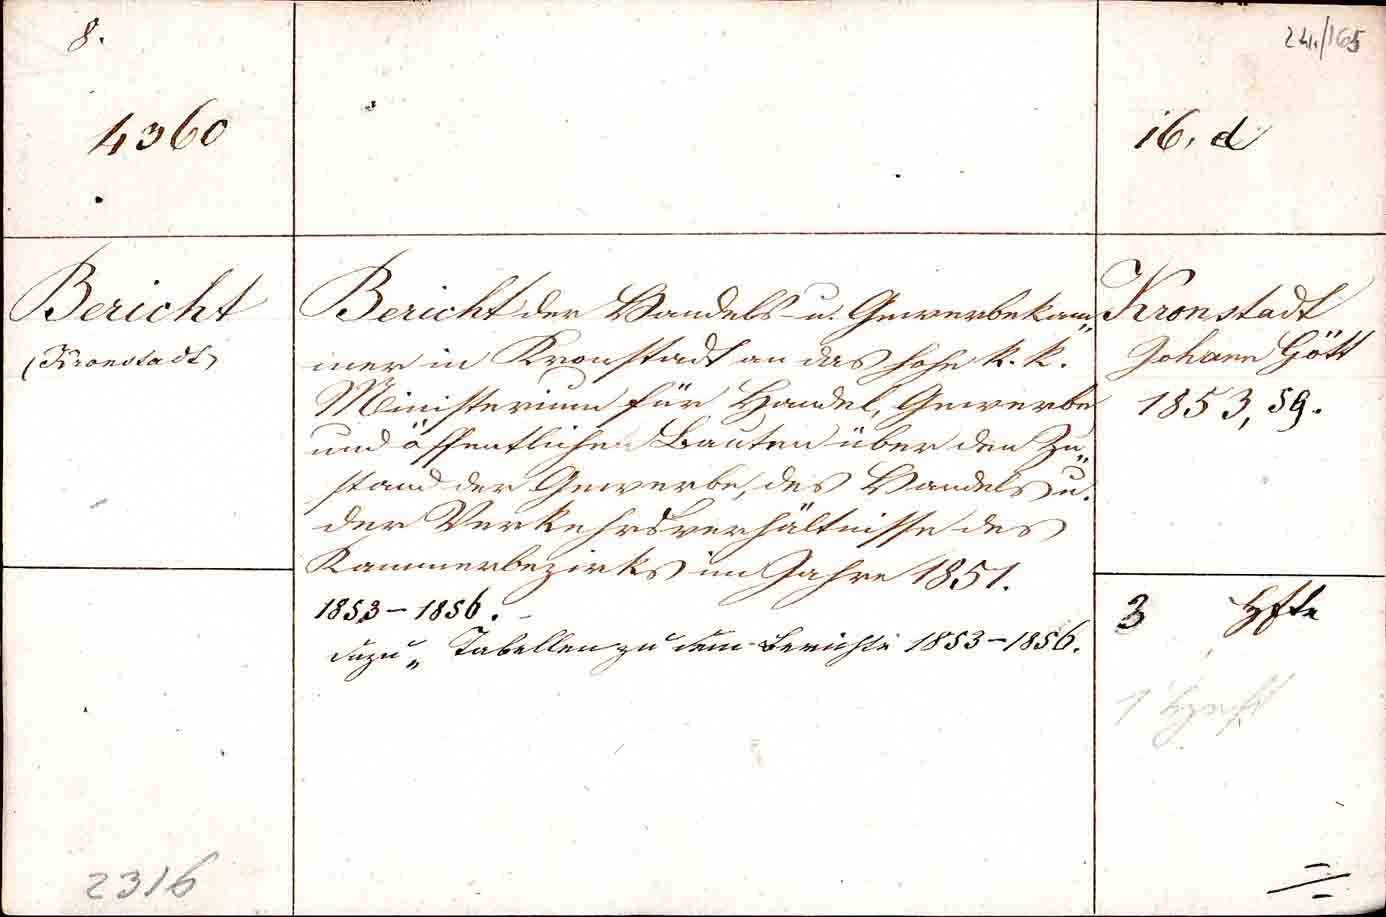 8.
4360
24./165
16. d
Bericht
(Kronstadt)
Bericht der Handels- u. Gewerbekam„
mer in Kronstadt an das hohe k. k.
Ministerium für Handel, Gewerbe
und öffentliche Bauten über den Zu„
stand der Gewerbe, des Handels u.
der Verkehrsverhältnisse des
Kammerbezirks im Jahre 1851.
1853–1856.
dazu „ Tabellen zu dem Berichte 1853–1856.
Kronstadt
Johann Gött
1853, 59.
3 Hfte
1 Heft
2316